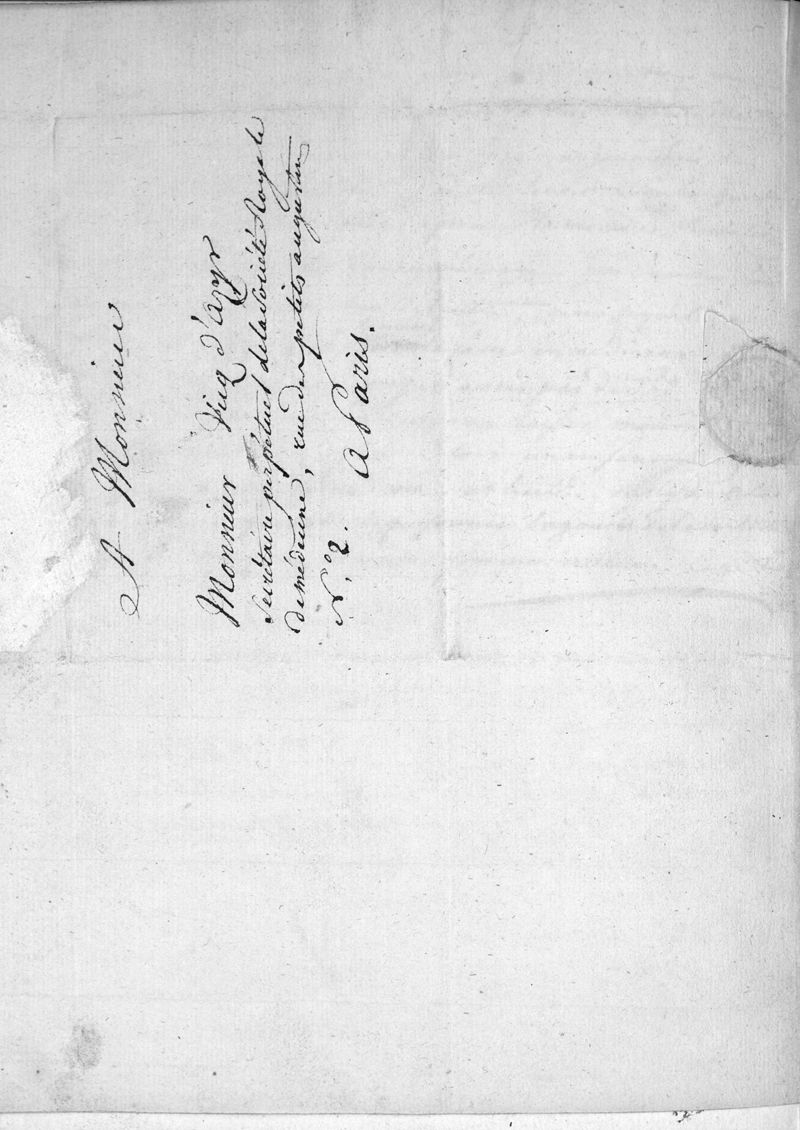 A Monsieur
Monsieur Vicq d'Azyr
Secrétaire perpétuel de la Société Royale
de médecine, rue des petits augustins
N.º 2. A Paris.